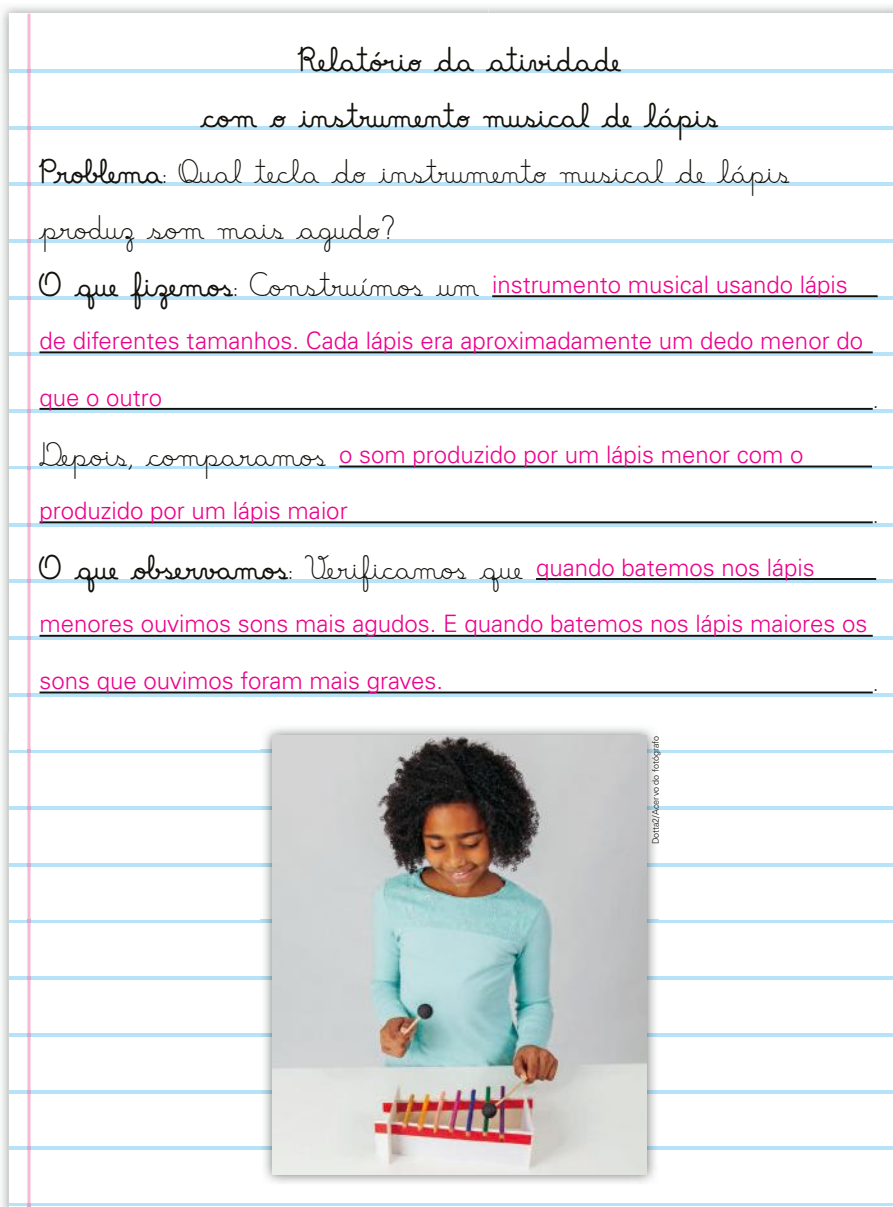 Relatório da atividade
com o instrumento musical de lápis
Problema: Qual tecla do instrumento musical de lápis
produz som mais agudo?
O que fizemos: Construímos um instrumento musical usando lápis
de diferentes tamanhos. Cada lápis era aproximadamente um dedo menor do
que o outro.
Depois, comparamos o som produzido por um lápis menor com o
produzido por um lápis maior.
O que observamos: Verificamos que quando batemos nos lápis
menores ouvimos sons mais agudos. E quando batemos nos lápis maiores os
sons que ouvimos foram mais graves. .
Dotta2/Acervo do fotógrafo